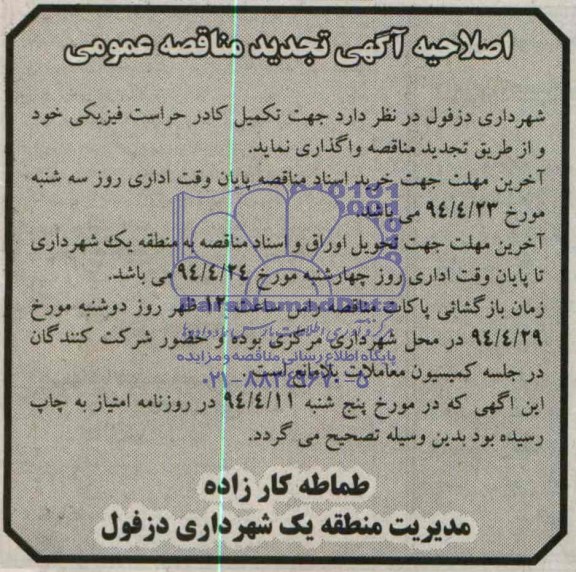 اصلاحیه آگهی تجدید مناقصه عمومی
شهرداری دزفول در نظر دارد جهت تکمیل کادر حراست فیزیکی خود
و از طریق تجدید مناقصه واگذاری نماید.
آخرین مهلت جهت خرید اسناد مناقصه پایان وقت اداری روز سه شنبه
مورخ ۹٤/٤/۲۳ می باشد.
آخرین مهلت جهت تحویل اوراق و اسناد مناقصه به منطقه یک شهرداری
تا پایان وقت اداری روز چهارشنبه مورخ ۹٤/٤/۲٤ می باشد.
زمان بازگشائی پاکات مناقصه راس ساعت ۱۲ ظهر روز دوشنبه مورخ
۹٤/٤/۲۹ در محل شهرداری مرکزی بوده و حضور شرکت کنندگان
در جلسه کمیسیون معاملات بلامانع است.
این اگهی که در مورخ پنج شنبه ۹٤/٤/۱۱ در روزنامه امتیاز به چاپ
رسیده بود بدین وسیله تصحیح می گردد.
طماطه کار زاده
مدیریت منطقه یک شهرداری دزفول
ParsNamadData
پایگاه اطلاع رسانی مناقصه و مزایده
۰۲۱-۸۸۳٤۹٦۷۰-۵